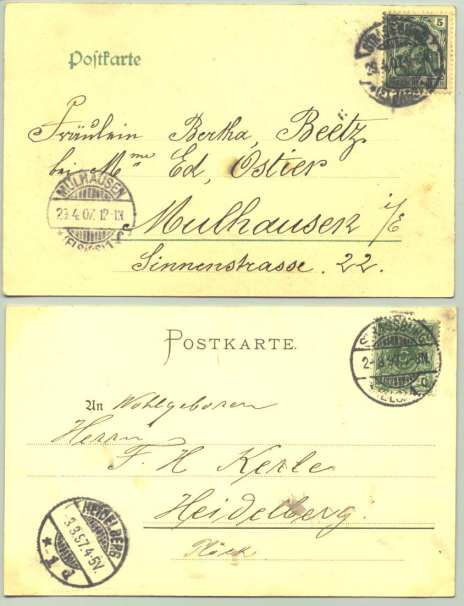 Postkarte
5
Fräulein Bertha Beetz
bei Mme Ed, Ostier
Mulhausen i/E
Sinnenstrasse. 22.
MÜLHAUSEN
29.4.07. 12-1N
POSTKARTE.
An Wohlgeboren
Herrn
F. H Kerle
Heidelberg.
HEIDELBERG
3.3.97. 4-5V.